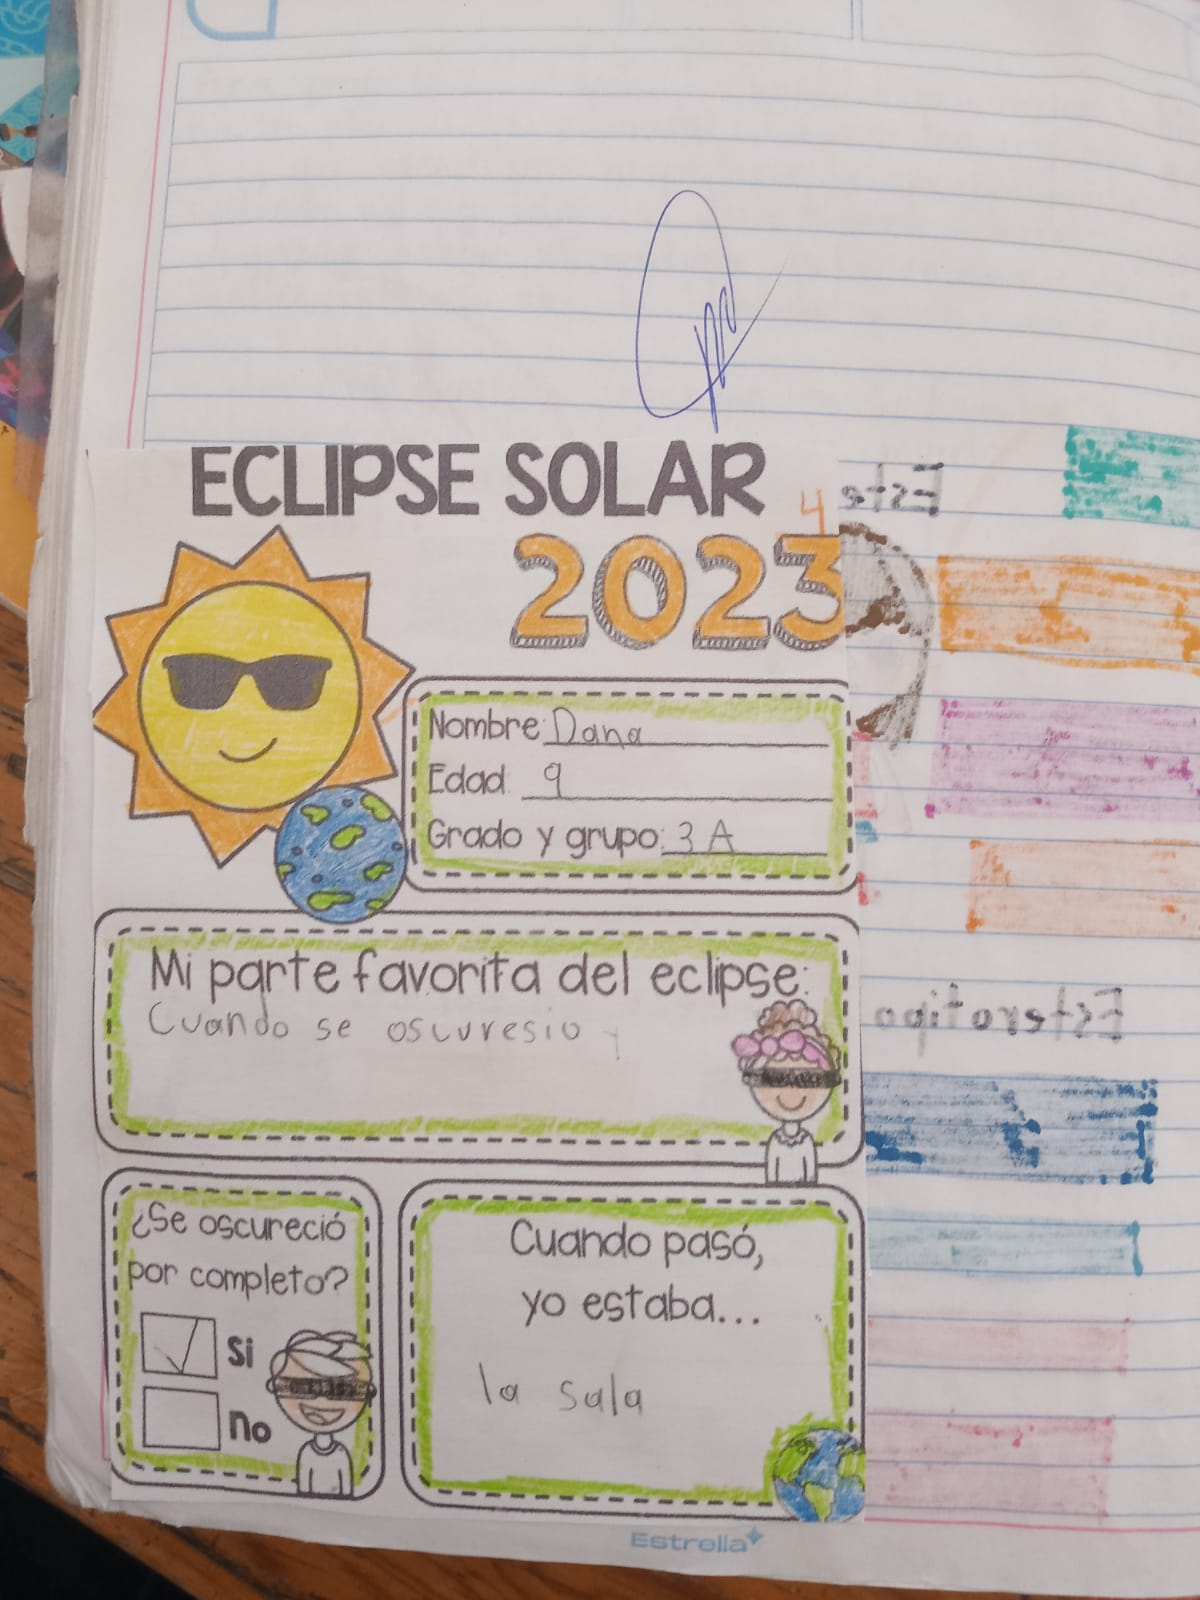 ECLIPSE SOLAR
4
2023
Nombre: Dana
Edad 9
Grado y grupo: 3 A
Mi parte favorita del eclipse:
Cuando se oscuresio y
¿Se oscureció
por completo?
Si
no
Cuando pasó,
yo estaba...
la sala
Este
Esterotipo
Estrella